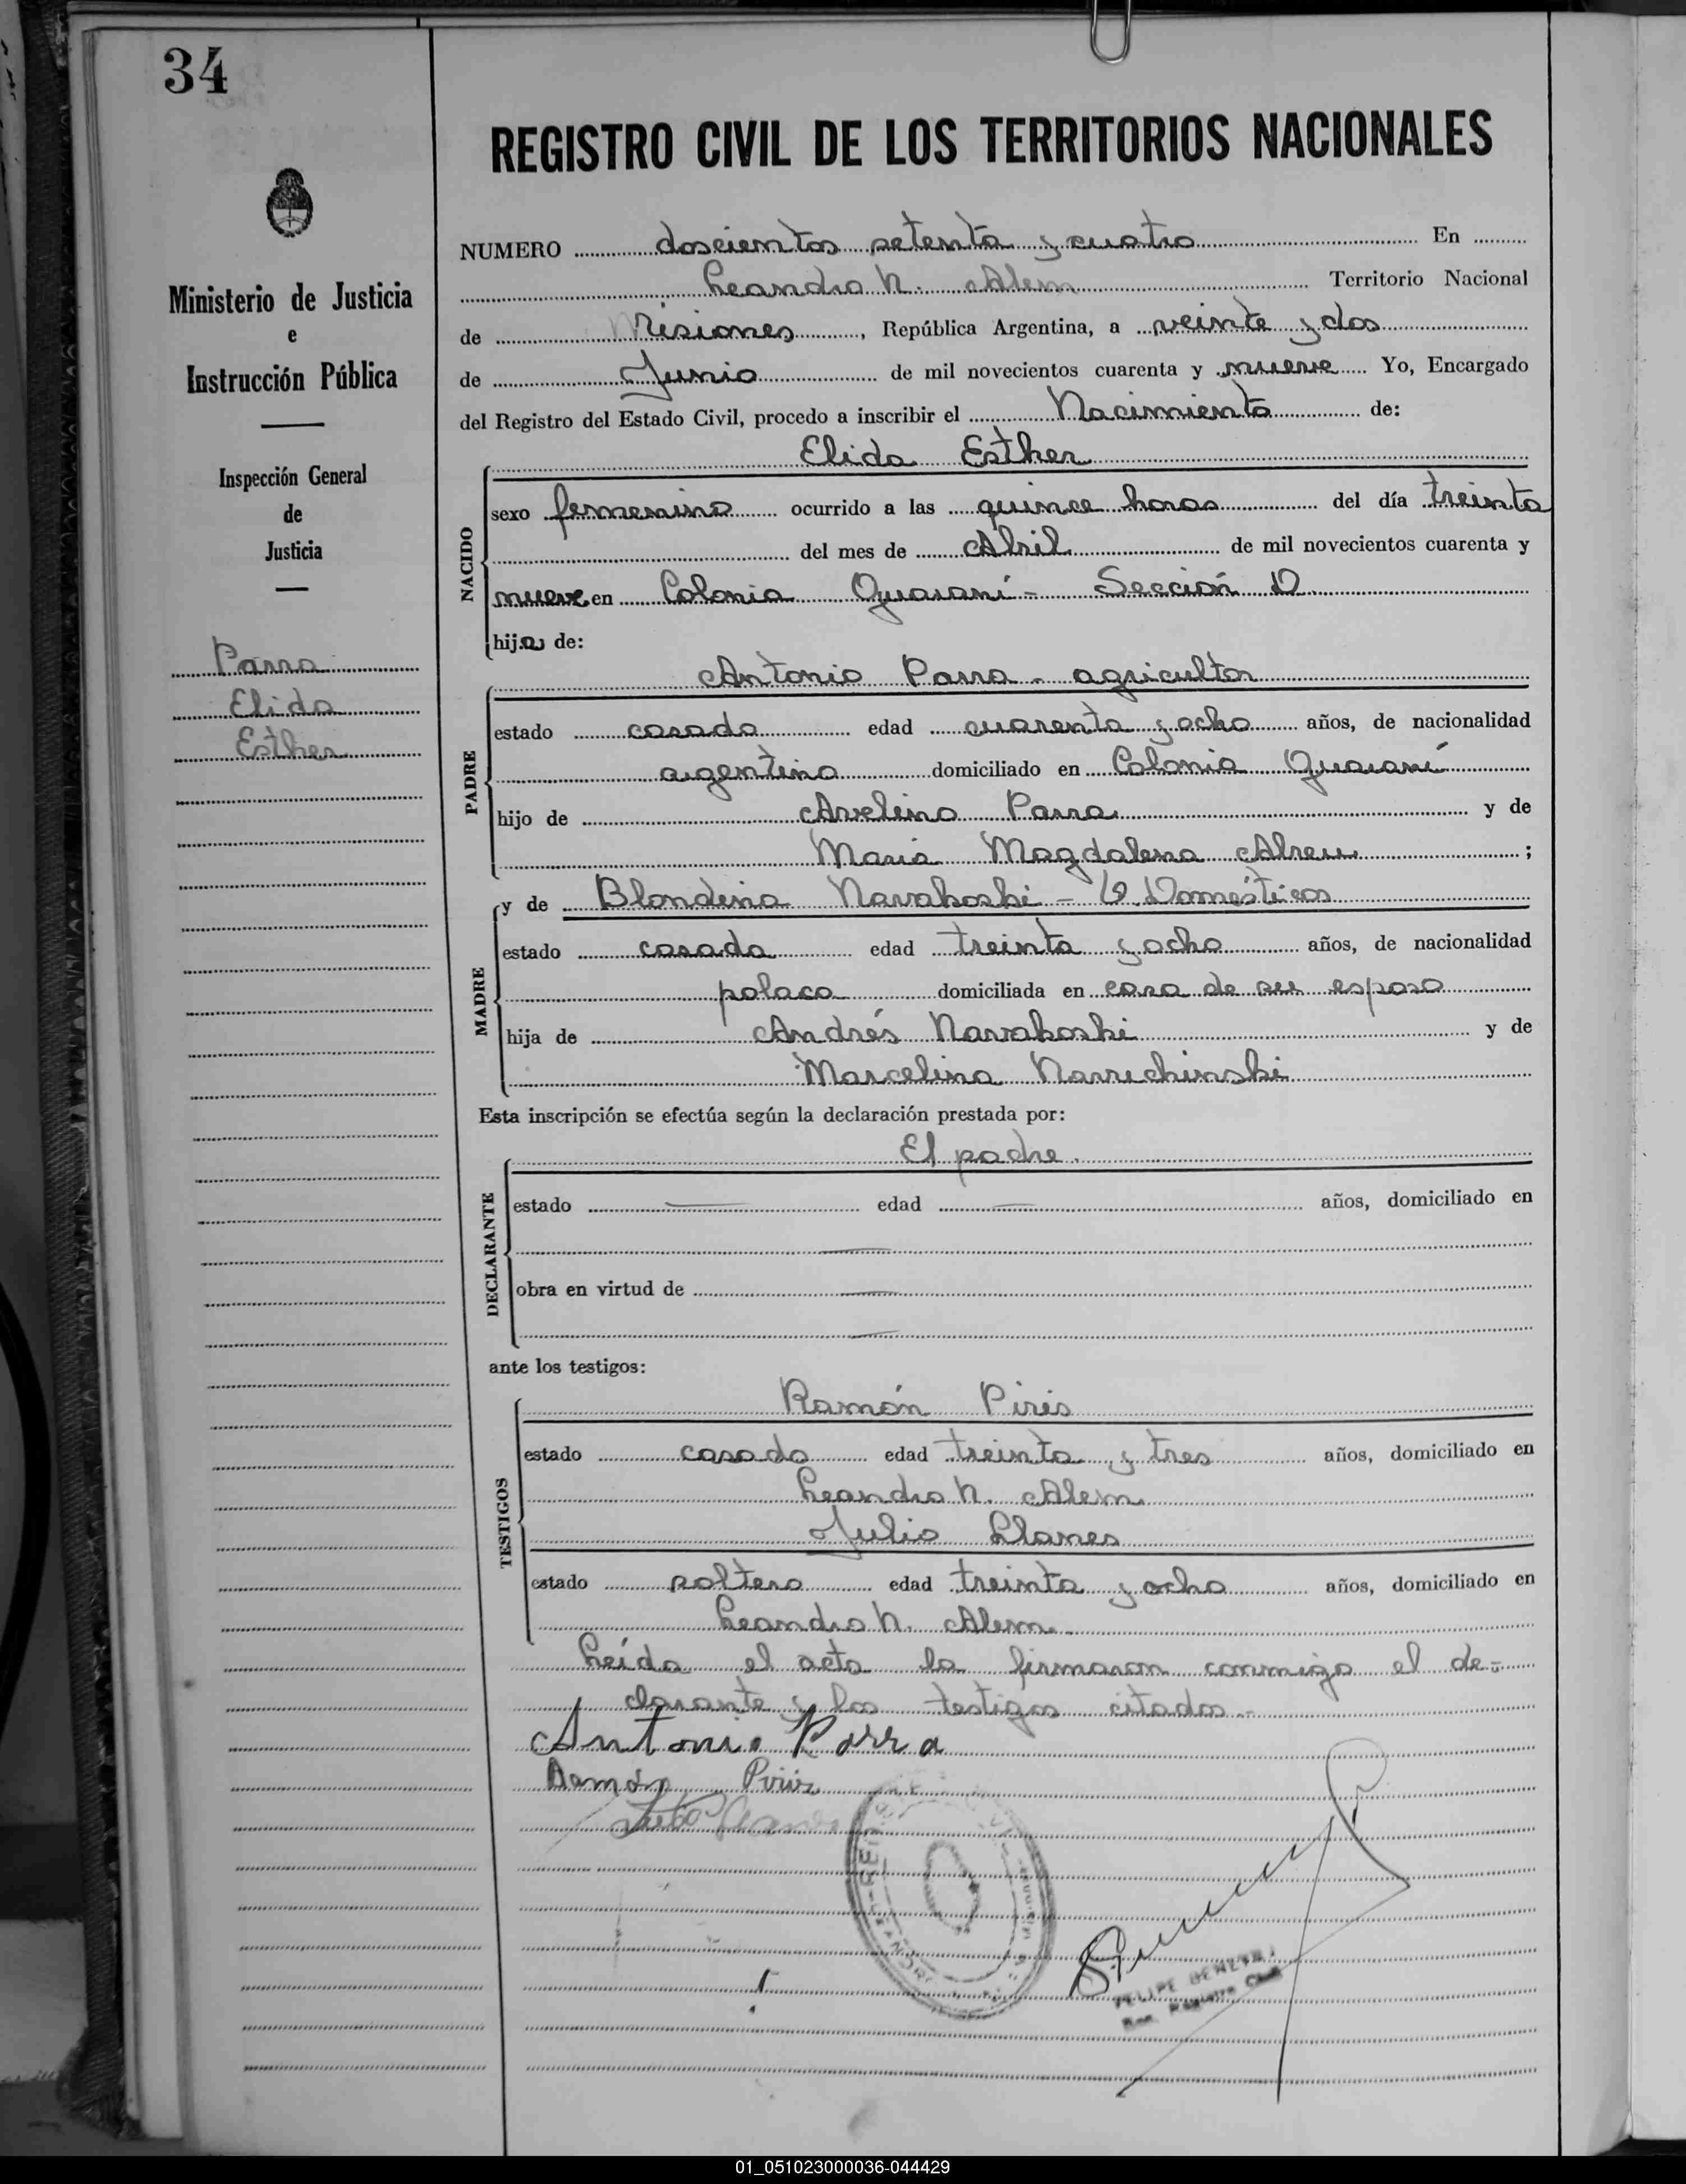 34
REGISTRO CIVIL DE LOS TERRITORIOS NACIONALES
Ministerio de Justicia
e
Instrucción Pública
Inspección General
de
Justicia
Parra
Elida
Esther
NUMERO doscientos setenta y cuatro En
Leandro N. Alem Territorio Nacional
de Misiones, República Argentina, a veinte y dos
de Junio de mil novecientos cuarenta y nueve Yo, Encargado
del Registro del Estado Civil, procedo a inscribir el Nacimiento de:
Elida Esther
NACIDO
sexo femenino ocurrido a las quince horas del día treinta
del mes de Abril de mil novecientos cuarenta y
nueve en Colonia Guaraní - Sección D
hija de:
Antonio Parra - agricultor
PADRE
estado casado edad cuarenta y ocho años, de nacionalidad
argentino domiciliado en Colonia Guaraní
hijo de Avelino Parra y de
María Magdalena Abreu ;
y de Blondina Navakoski - Q. Domésticos
MADRE
estado casada edad treinta y ocho años, de nacionalidad
polaca domiciliada en casa de su esposo
hija de Andrés Navakoski y de
Marcelina Navichinski
Esta inscripción se efectúa según la declaración prestada por:
El padre.
DECLARANTE
estado — edad — años, domiciliado en
—
obra en virtud de —
—
ante los testigos:
Ramón Piris
TESTIGOS
estado casado edad treinta y tres años, domiciliado en
Leandro N. Alem
Julio Llanes
estado soltero edad treinta y ocho años, domiciliado en
Leandro N. Alem
Leída el acta la firmaron conmigo el de-
clarante y los testigos citados -
Antonio Parra
Ramón Piriz
FELIPE
Registro Civil
01_051023000036-044429